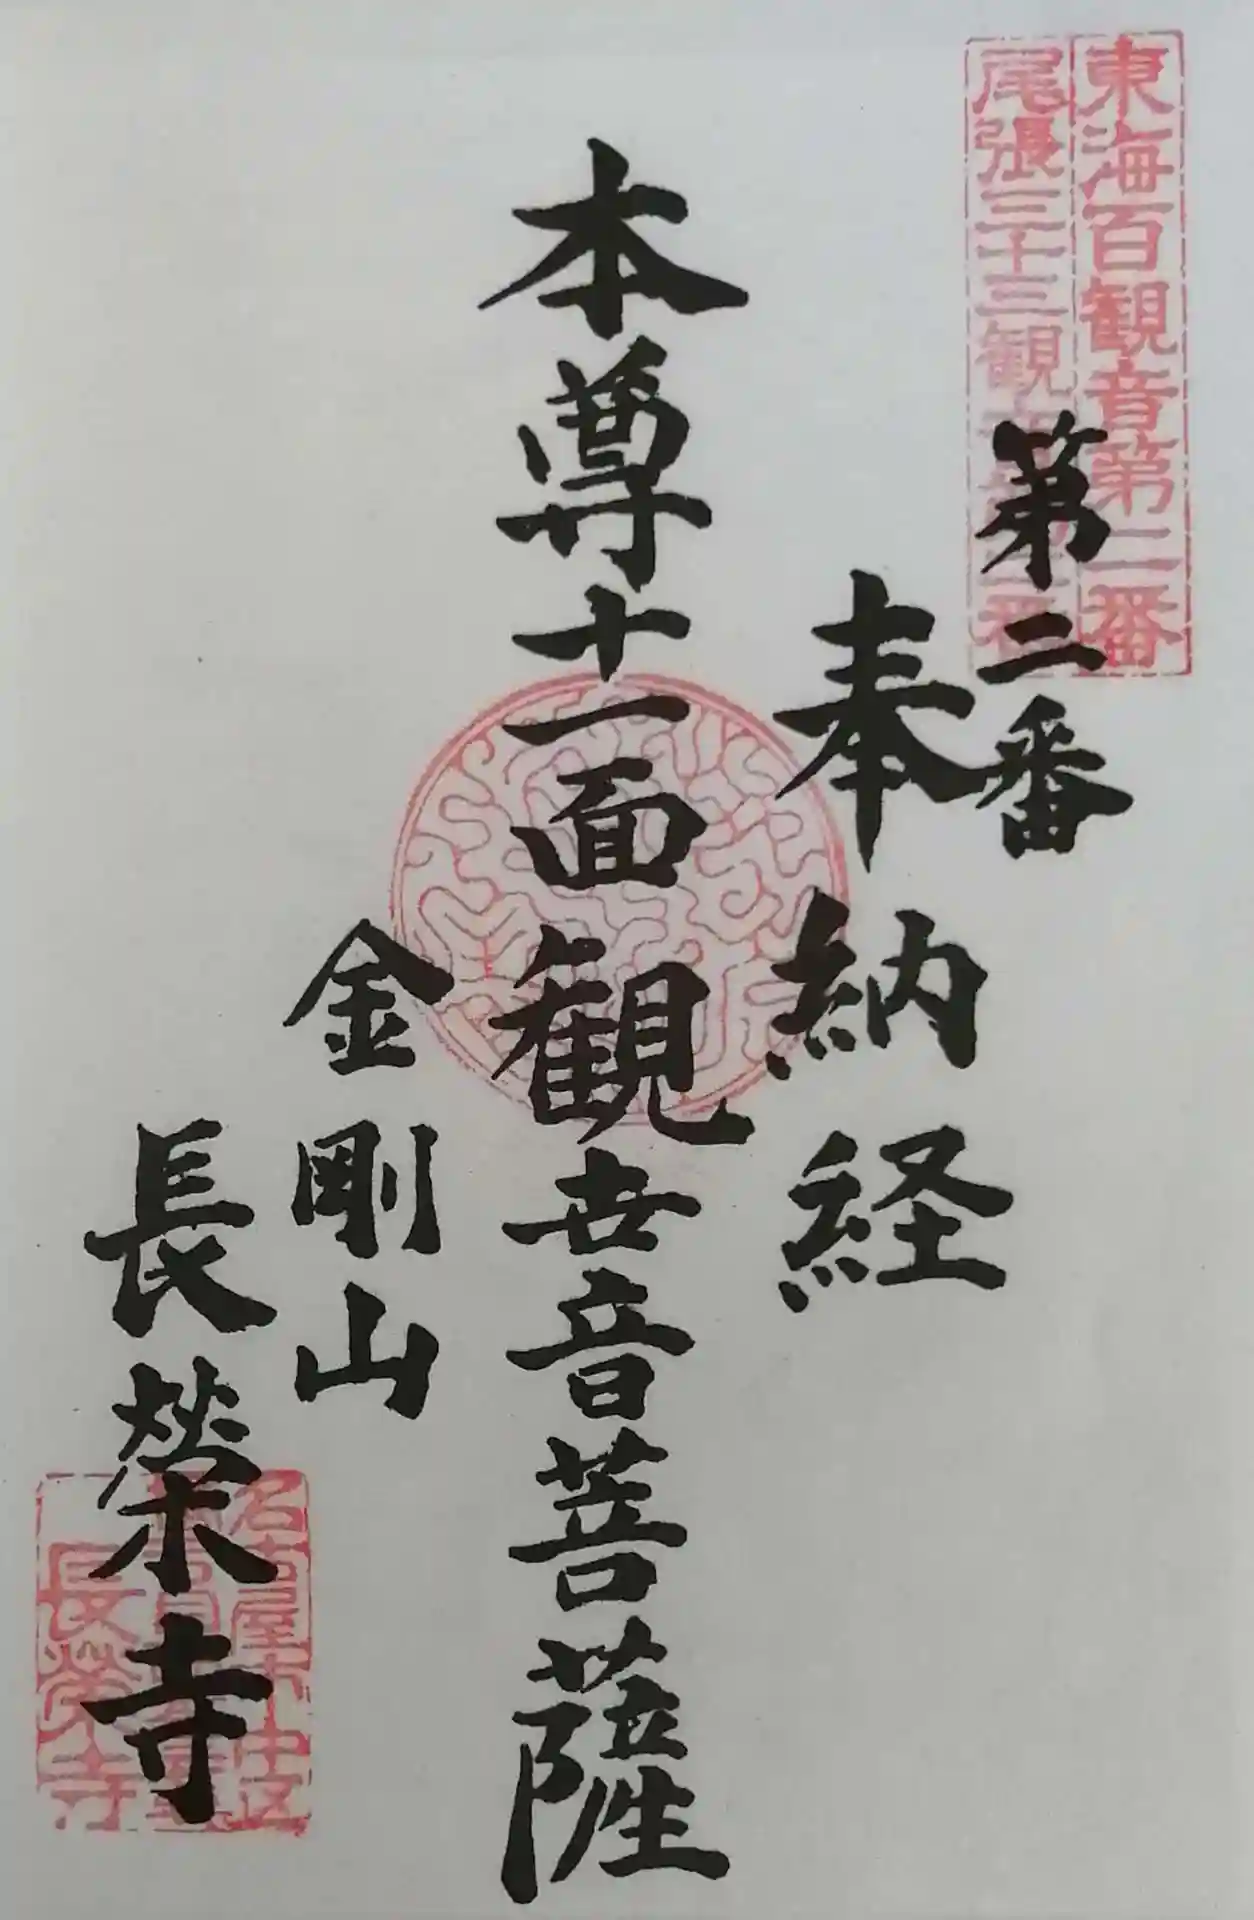 東海百観音第二番
尾張三十三観音第二番
第二番
奉納経
本尊十一面観世音菩薩
金剛山
長榮寺
名古屋市中区
長榮寺